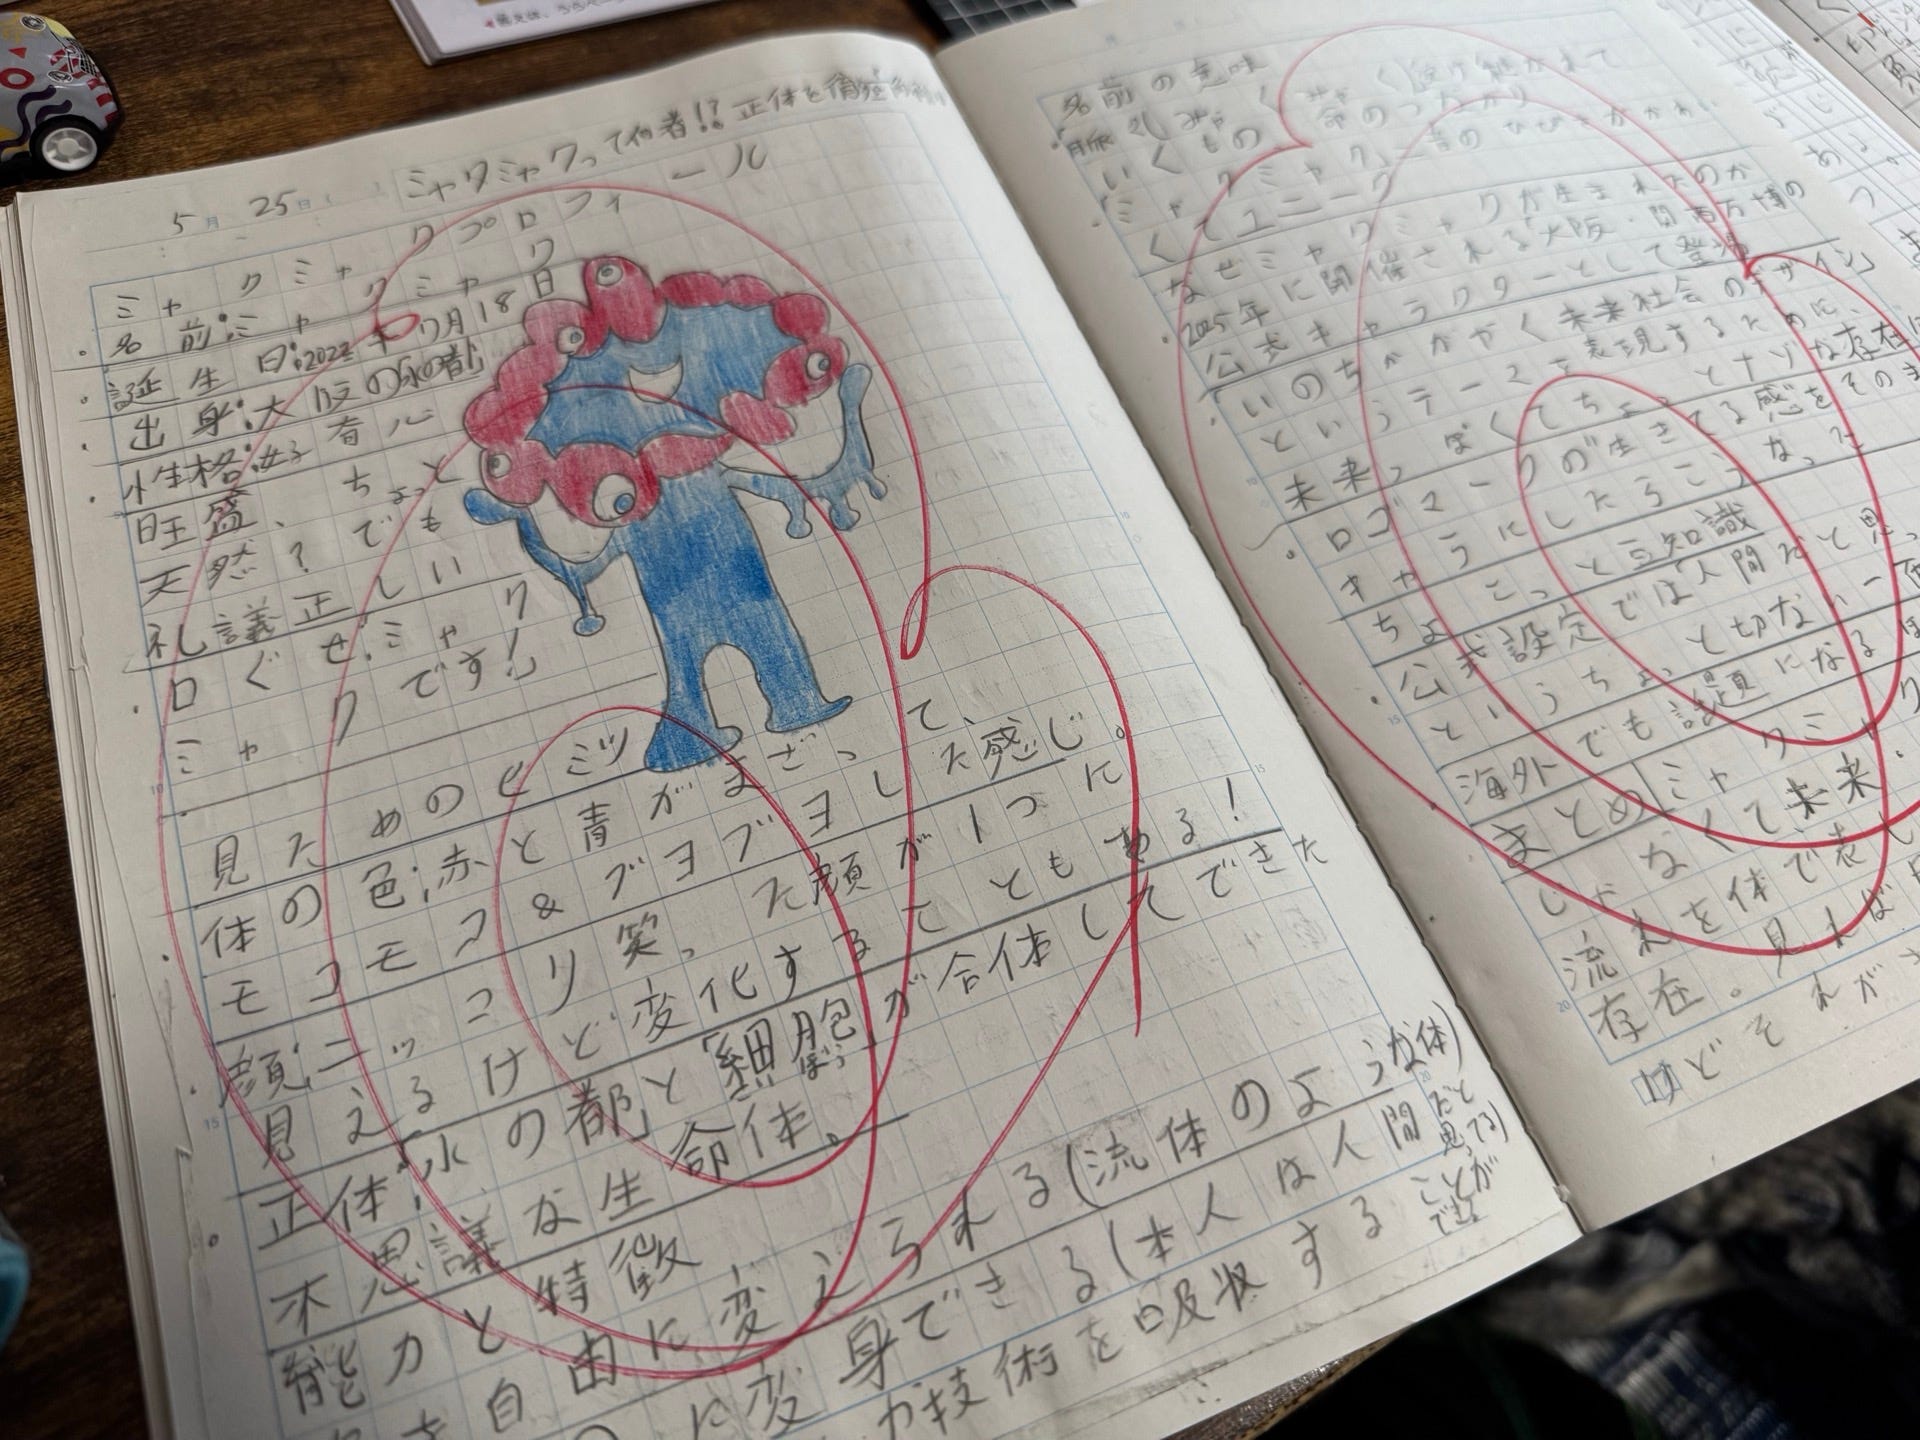 5月 25日( ) ミャクミャクって何者!? 正体を徹
ミャクミャクプロフィール
・名前:ミャクミャク
・誕生日:2022年7月18日
・出身:大阪の水の都
・性格:好奇心
旺盛、ちょっと
天然?でも
礼議正しい
・口ぐせ:ミャク
ミャクです!
見ためのヒミツ
体の色:赤と青がまざって、
モコモコ&ブヨブヨした感じ。
・顔:ニッコリ笑った顔が1つに
見えるけど変化することもある!
・正体:「水の都」と「細胞」が合体してできた
ぼう
不思議な生命体。
能力と特徴
自由に変えられる(流体のような体)
に変身できる(本人は人間だと思ってる)
技術を吸収することができる
名前の意味
・「脈々(みゃくみゃく)」受け継がれて
いくもの、命のつながり
・「ミャクミャク」音のひびきがかわいくてユニーク
なぜミャクミャクが生まれたのか
・2025年に開催される「大阪・関西万博の
公式キャラクターとして登場
・「いのちかがやく未来社会のデザイン」
というテーマを表現するために、
未来っぽくてちょっとナゾな存在に
・ロゴマークの"生きてる感をそのま
キャラにしたらこうなった
ちょこっと豆知識
・公式設定では「人間だと思っ
というちょっと切ない一面
・海外でも話題になるほ
まとめ ミャクミャク
じゃなくて未来、
流れを体で表し
存在。見れば見
ほどそれが